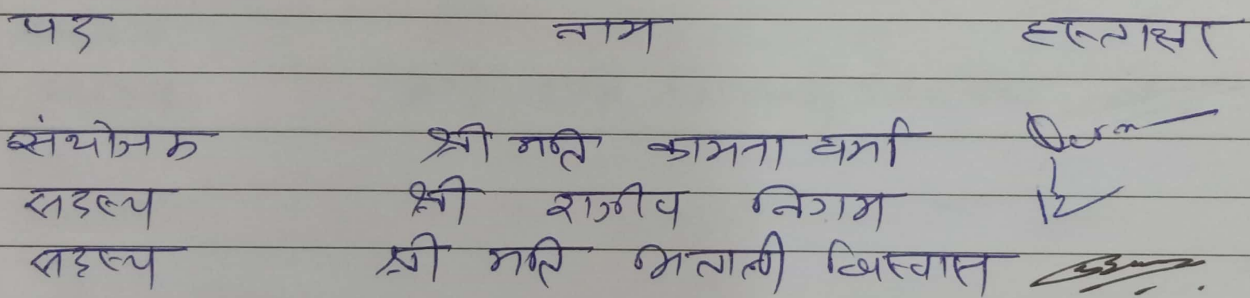 पद नाम हस्ताक्षर
संयोजक श्री मति कामना वर्मा
सदस्य श्री राजीव निगम
सदस्य श्री मति मिताली बिस्वास